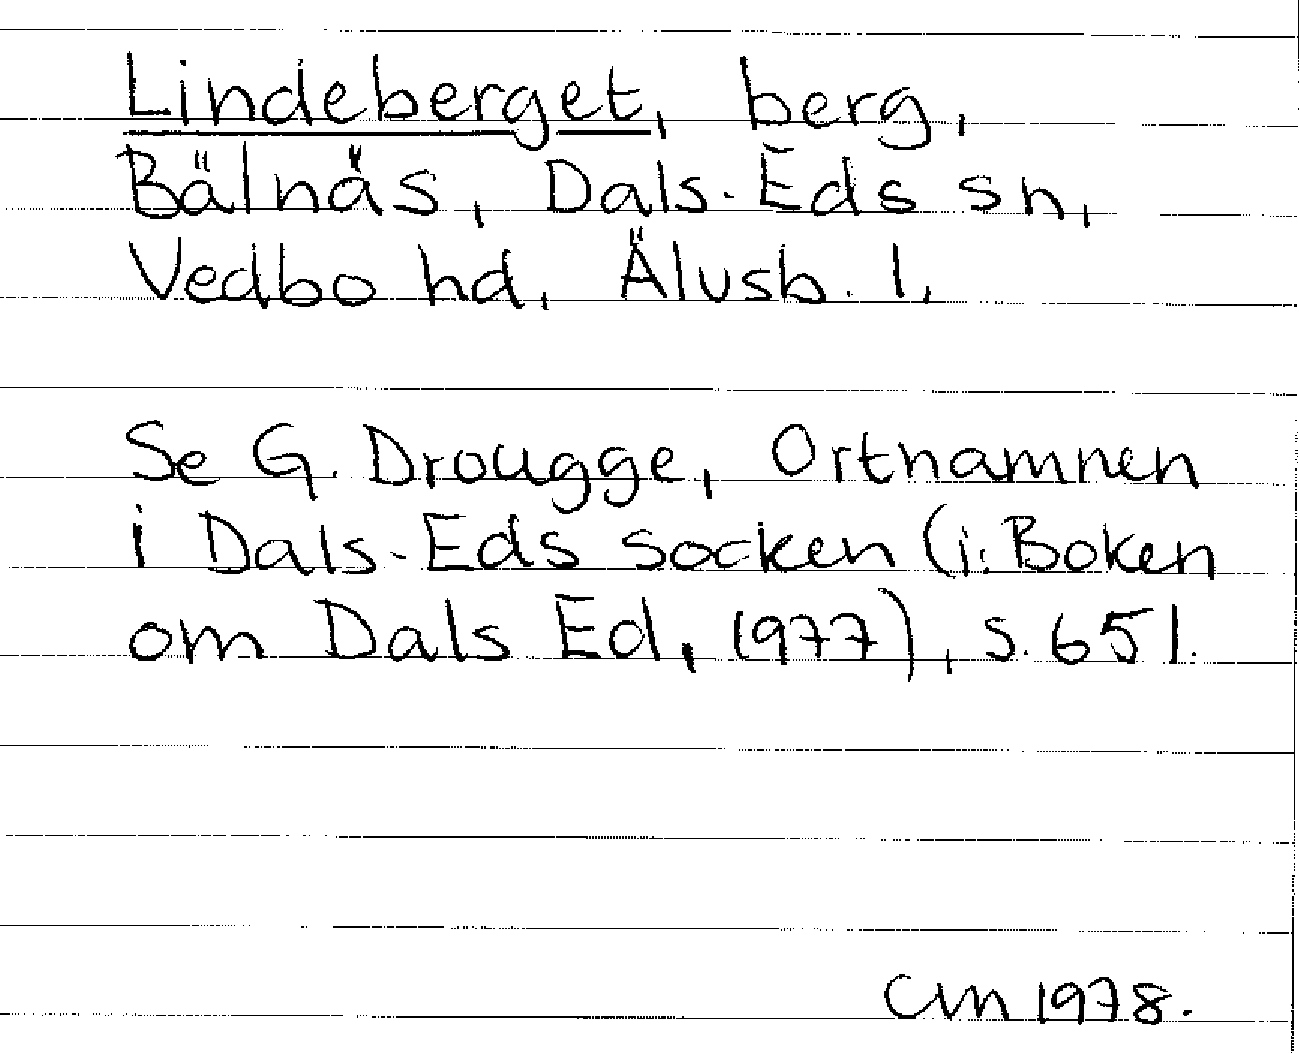 Lindeberget, berg,
Bälnäs, Dals-Eds sn,
Vedbo hd, Älvsb. l.
Se G. Drougge, Ortnamnen
i Dals-Eds socken (i: Boken
om Dals Ed, 1977), s. 651.
CM 1978.